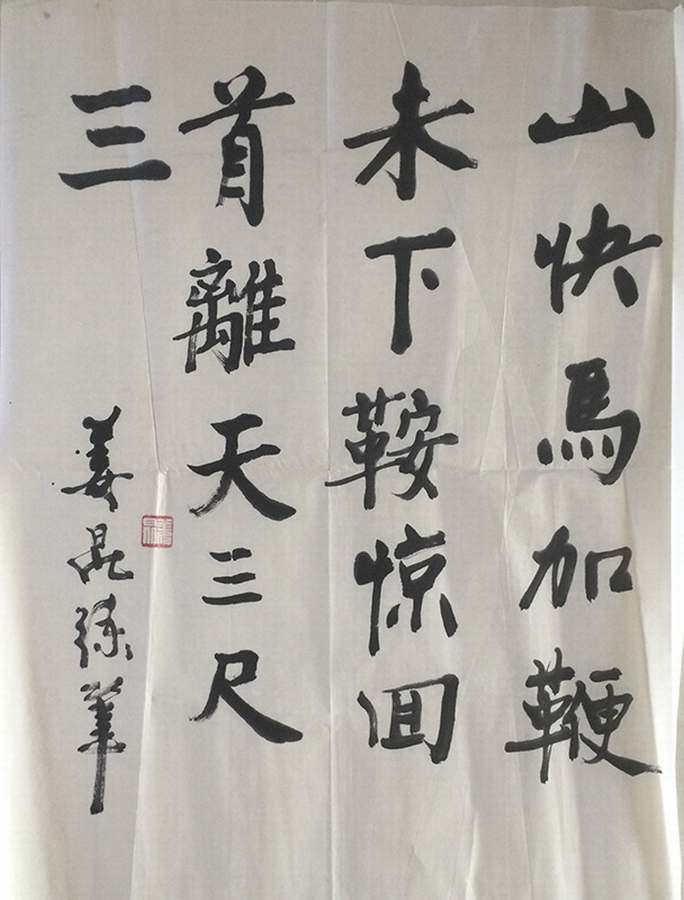 山快馬加鞭
未下鞍惊回
首離天三尺
三
姜昆练筆